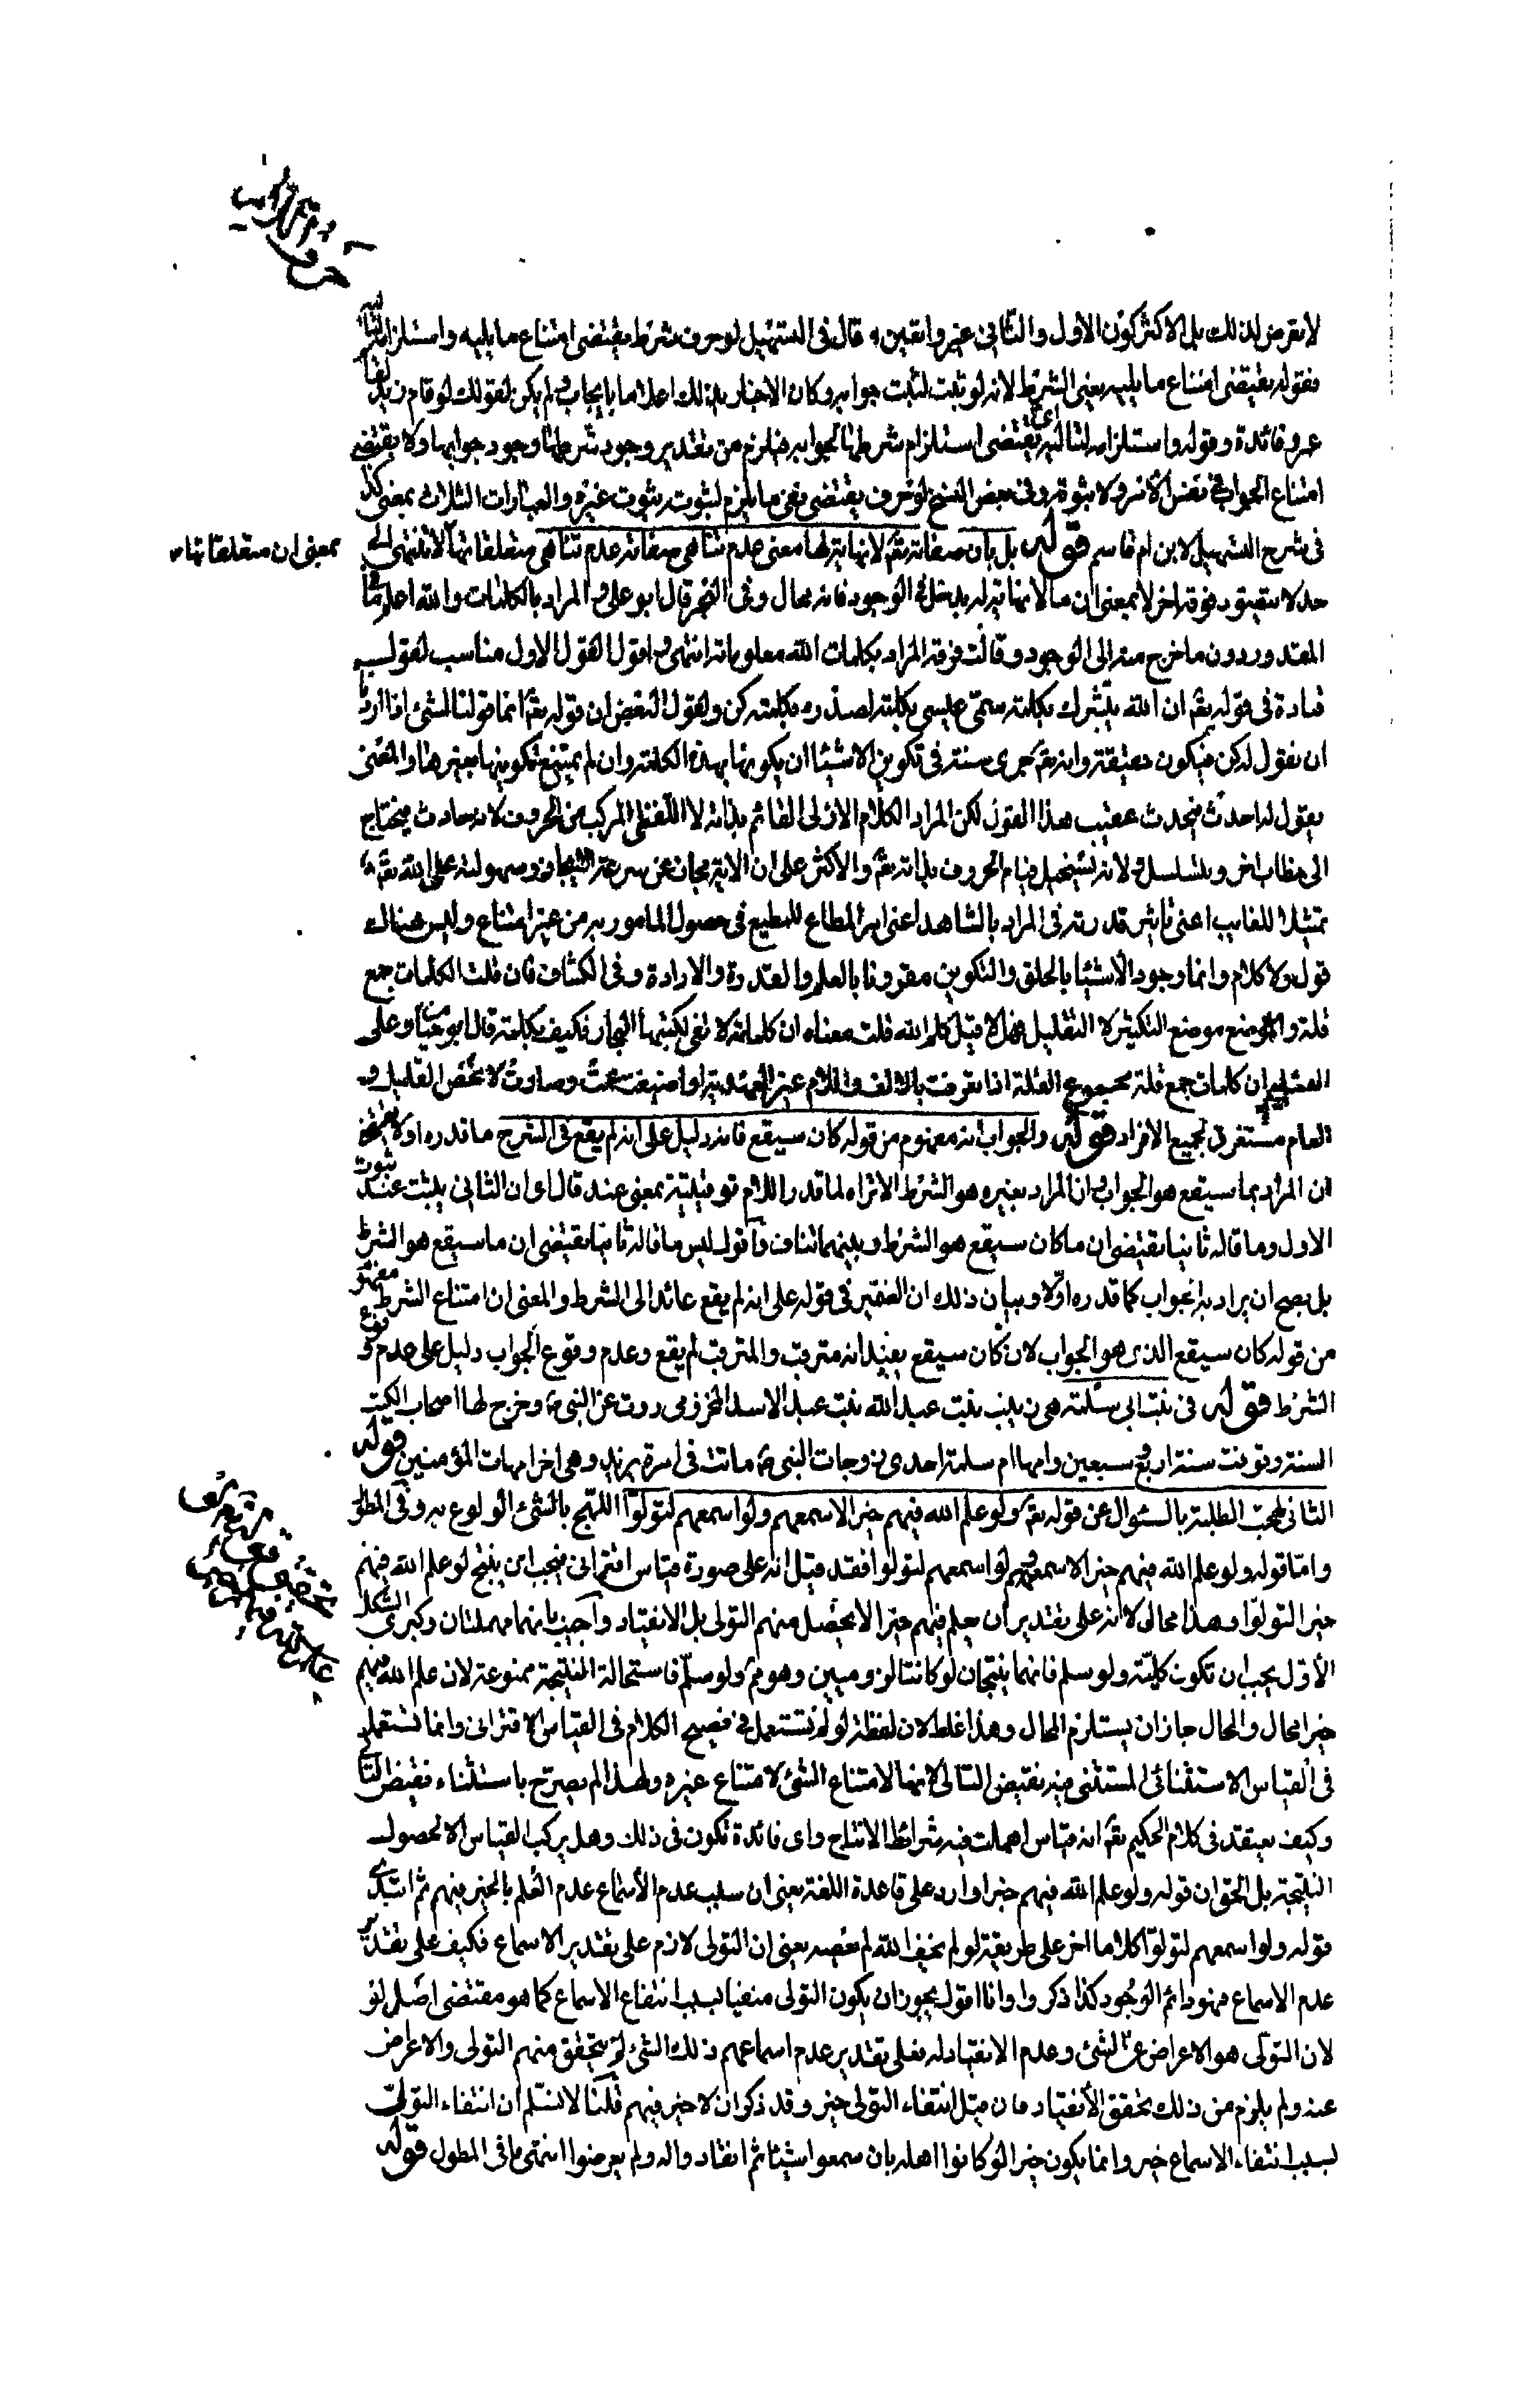 لا تعرض لذلك بل الاكثر كون الاول والثاني غير واقعين قال في التسهيل لو حرف شرط يقتضى امتناع ما يليه واستلزامه لتاليه
فقوله يقتضى امتناع ما يليه يعنى الشرط لانه لو ثبت لثبت جوابه وكان الاخبار بذلك اعلاما بايجاب لم يكن لقولك لو قام زيد لقام
عمرو فائدة وقوله واستلزامه لتاليه اى يقتضى استلزام شرطها لجوابه فيلزم من تقدير وجود شرطها وجود جوابها ولا يقتضى
امتناع الجواب في نفس الامر ولا ثبوته وفي بعض النسخ لو حرف يقتضى نفى ما يلزم لثبوته ثبوت غيره والعبارات الثلاث بمعنى كذا
في شرح التسهيل لابن ام قاسم قوله بل بان صفاته تعم لا نهاية لها معنى عدم تناهى صفاته عدم تناهى متعلقاتها لا تنتهى الى
بمعنى ان متعلقاتها
حد لا يتصور فوقه اخر لا بمعنى ان ما لا نهاية له يدخل في الوجود فانه محال وفي النهر قال ابو على والمراد بالكلمات والله اعلم ما في
المقدور دون ما خرج منه الى الوجود وقالت فرقة المراد بكلمات الله معلوماته انتهى واقول القول الاول مناسب لقول
قتادة في قوله تعم ان الله يبشرك بكلمة سمى عيسى بكلمة لصدوره بكلمة كن ولقول البعض ان قوله تعم انما قولنا لشئ اذا اردنا
ان نقول له كن فيكون حقيقة وانه تعم جرى سنته في تكوين الاشيئا ان يكونها بهذه الكلمة وان لم يمتنع تكوينها بغيرها والمعنى
يقول له احدث فيحدث عقيب هذا القول لكن المراد الكلام الازلى القائم بذاته لا اللفظى المركب من الحروف لانه حادث فيحتاج
الى خطاب اخر ويتسلسل ولانه يستحيل قيام الحروف بذاته تعم والاكثر على ان الاية مجاز عن سرعة الايجاد وسهولته على الله تعم
تمثيلا للغايب اعنى تاثير قدرته في المراد بالشاهد اعنى امر المطاع للمطيع في حصول المامور به من غير امتناع وليس هناك
قول ولا كلام وانما وجود الاشيئا بالخلق والتكوين مقرونا بالعلم والقدرة والارادة وفي الكشاف فان قلت الكلمات جمع
قلة والموضع موضع التكثير لا التقليل فهلا قيل كلم الله قلت معناه ان كلماته لا تفى بكتبتها البحار فكيف بكلمه قال ابو حيان وعلى
التسليم ان كلمات جمع قلة فجموع القلة اذا تعرفت بالالف واللام غير العهدية او اضيفت عمت وصارت لا تخص القليل و
العام مستغرق لجميع الافراد قوله والجواب انه مفهوم من قوله كان سيقع فانه دليل على انه لم يقع في الشرح ما قدره اولا يقتضى
ان المراد بما سيقع هو الجواب وان المراد بغيره هو الشرط الا تراه لما قدر اللام توقيتية بمعنى عند قال اى ان الثاني يثبت عند ثبوت
الاول وما قاله ثانيا يقتضى ان ما كان سيقع هو الشرط وبينهما تناف واقول ليس ما قاله ثانيا يقتضى ان ما سيقع هو الشرط
بل يصح ان يراد به الجواب كما قدره اولا وبيان ذلك ان الضمير في قوله على انه لم يقع عائد الى الشرط والمعنى ان امتناع الشرط مفهوم
من قوله كان سيقع الذى هو الجواب لان كان سيقع يفيد انه مترقب والمترقب لم يقع وعدم وقوع الجواب دليل على عدم وقوع
الشرط قوله في بنت ابى سلمة هى زينب بنت عبد الله بنت عبد الاسد المخزومى روت عن النبى ص وخرج لها اصحاب الكتب
الستة وتوفيت سنة اربع وسبعين وامها ام سلمة احدى زوجات النبى ص ماتت في امرة يزيد وهى اخر امهات المؤمنين قوله
الثاني لهجت الطلبة بالسئوال عن قوله تعم ولو علم الله فيهم خيرا لاسمعهم ولو اسمعهم لتولوا اللهج بالشئ الولوع به وفي المطول
واما قوله ولو علم الله فيهم خيرا لاسمعهم ولو اسمعهم لتولوا فقد قيل انه على صورة قياس اقترانى فيجب ان ينتج لو علم الله فيهم
خيرا لتولوا وهذا محال لانه على تقدير ان يعلم فيهم خيرا لا يحصل منهم التولى بل الانقياد واجيب بانهما مهملتان وكبرى الشكل
الاول يجب ان تكون كلية ولو سلم فانهما ينتجان لو كانتا لزوميتين وهو مم ولو سلم فاستحالة النتيجة ممنوعة لان علم الله فيهم
خيرا محال والمحال جاز ان يستلزم المحال وهذا غلط لان لفظة لو لم تستعمل في فصيح الكلام في القياس الاقترانى وانما تستعمل
في القياس الاستثنائى المستثنى فيه نقيض التالى لانها لامتناع الشئ لامتناع غيره ولهذا لم يصرح باستثناء نقيض التالى
وكيف يعتقد في كلام الحكيم تعم انه قياس اهملت فيه شرائط الانتاج واى فائدة تكون في ذلك وهل يركب القياس الا لحصول
النتيجة بل الحق ان قوله ولو علم الله فيهم خيرا وارد على قاعدة اللغة يعنى ان سبب عدم الاسماع عدم العلم بالخير فيهم ثم ابتدى
قوله ولو اسمعهم لتولوا كلاما اخر على طريقة لو لم يخف الله لم يعصه يعنى ان التولى لازم على تقدير الاسماع فكيف على تقدير
عدم الاسماع فهو دائم الوجود كذا ذكروا وانا اقول يجوز ان يكون التولى منفيا بسبب انتفاء الاسماع كما هو مقتضى اصل لو
لان التولى هو الاعراض عن الشئ وعدم الانقياد له فعلى تقدير عدم اسماعهم ذلك الشئ لم يتحقق منهم التولى والاعراض
عنه ولم يلزم من ذلك تحقق الانقياد فان قيل انتفاء التولى خير وقد ذكر ان لا خير فيهم قلنا لا نسلم ان انتفاء التولى
بسبب انتفاء الاسماع خير وانما يكون خيرا لو كانوا اهله بان سمعوا شيئا ثم انقادوا له ولم يعرضوا انتهى ما في المطول قوله